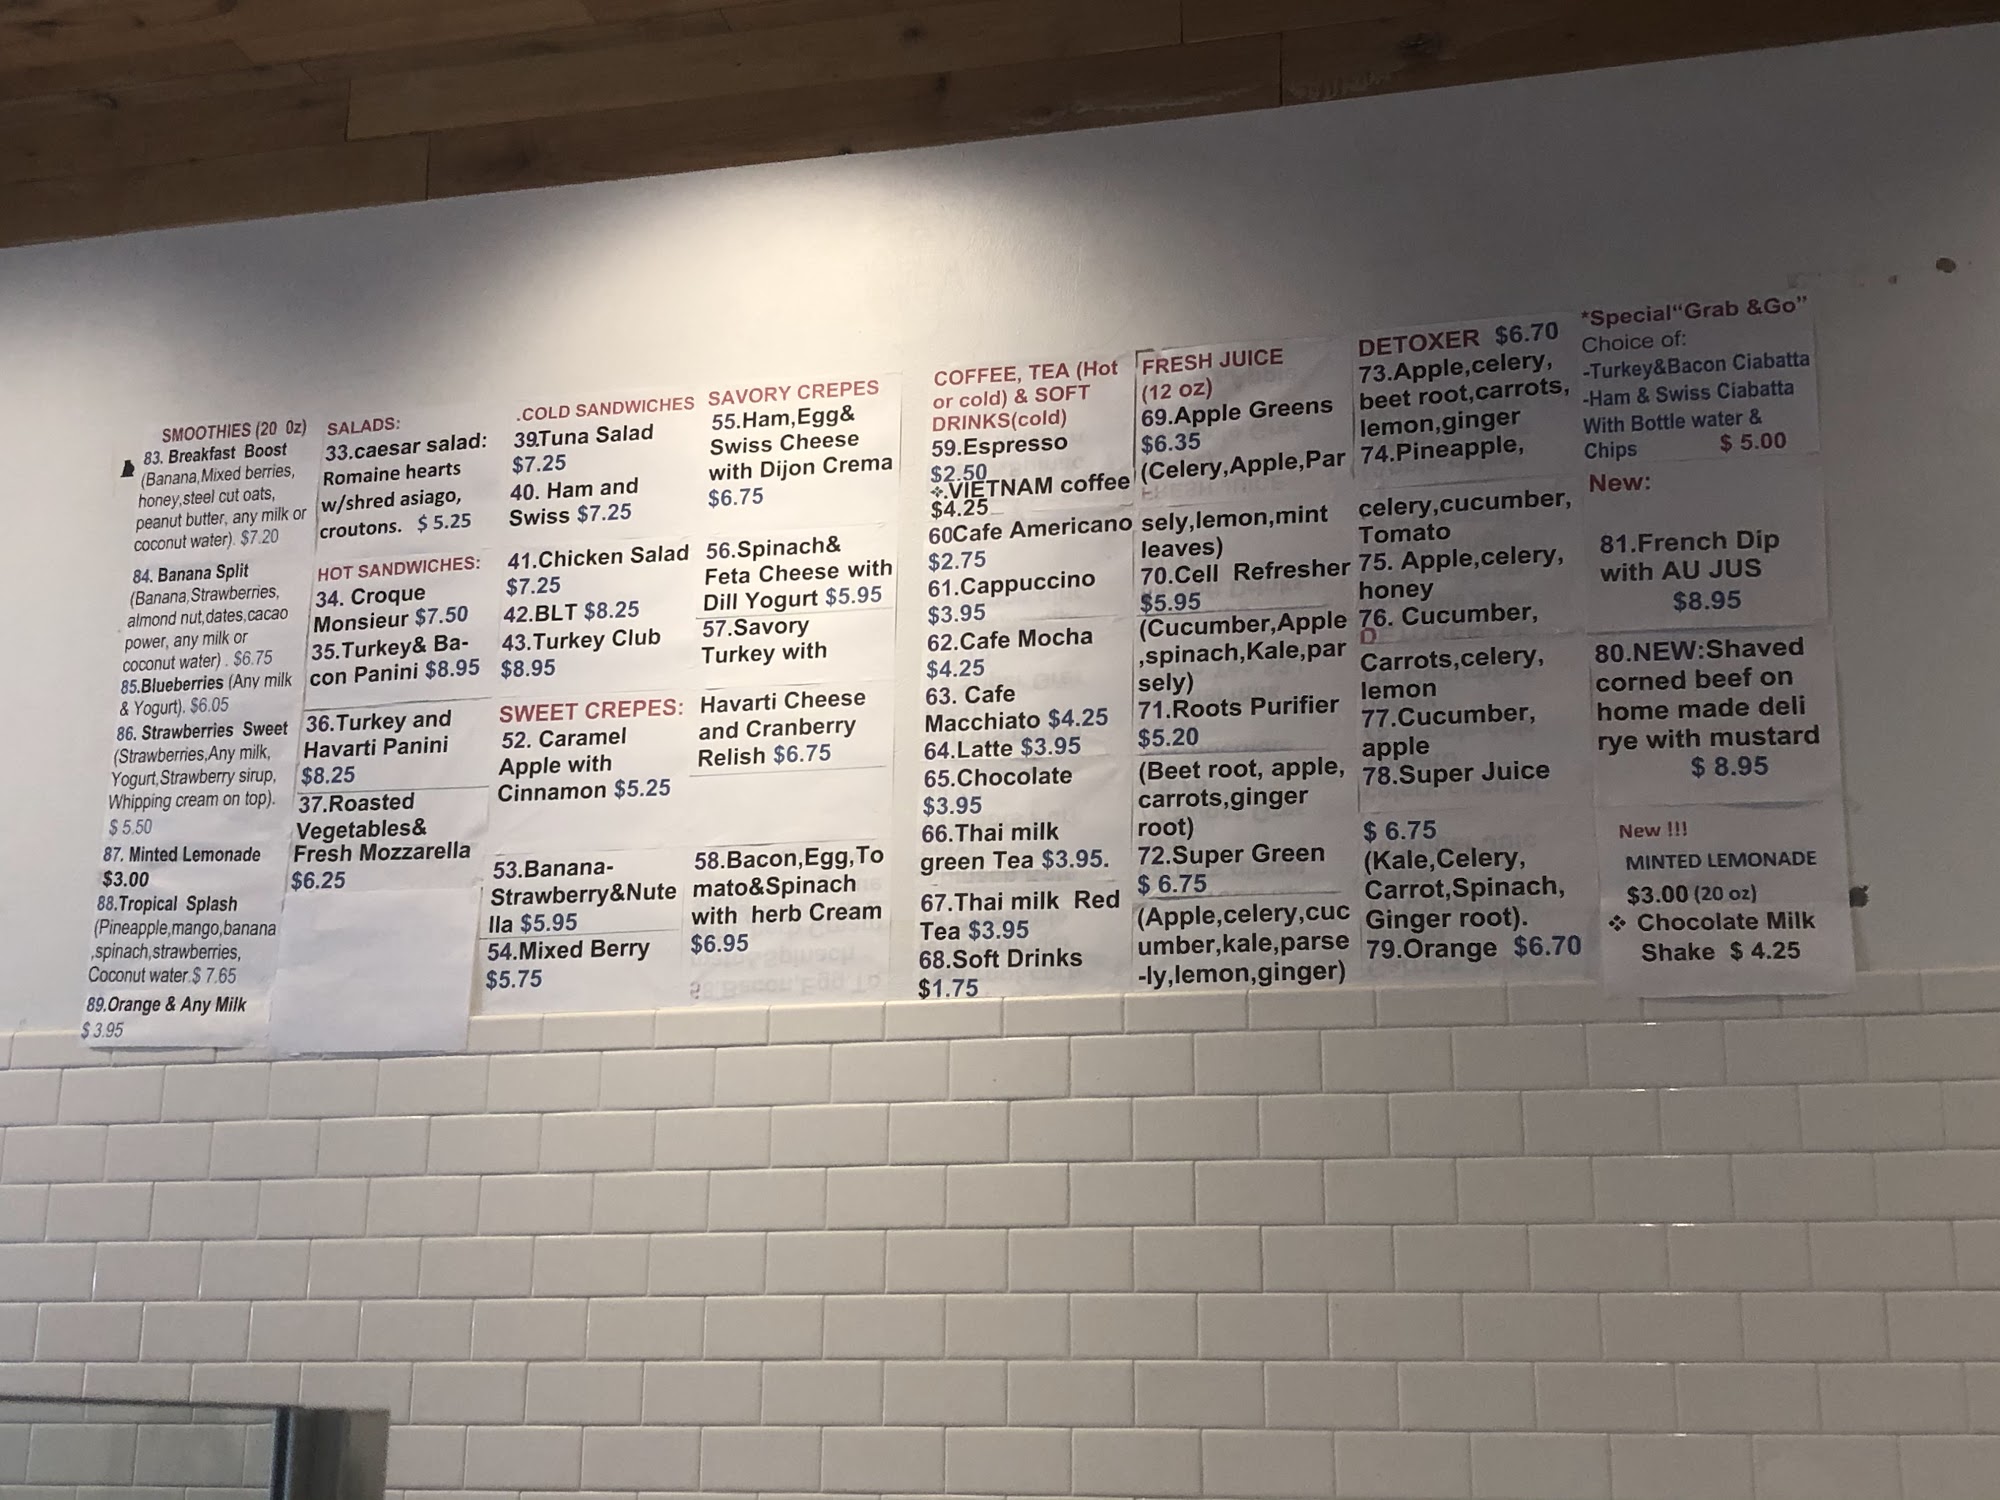 SMOOTHIES (20 0z)
83. Breakfast Boost
(Banana,Mixed berries,
honey,steel cut oats,
peanut butter, any milk or
coconut water). $7.20
84. Banana Split
(Banana,Strawberries,
almond nut,dates,cacao
power, any milk or
coconut water) . $6.75
85.Blueberries (Any milk
& Yogurt). $6.05
86. Strawberries Sweet
(Strawberries,Any milk,
Yogurt,Strawberry sirup,
Whipping cream on top).
$ 5.50
87. Minted Lemonade
$3.00
88.Tropical Splash
(Pineapple,mango,banana
,spinach,strawberries,
Coconut water.$ 7.65
89.Orange & Any Milk
$ 3.95
SALADS:
33.caesar salad:
Romaine hearts
w/shred asiago,
croutons. $ 5.25
HOT SANDWICHES:
34. Croque
Monsieur $7.50
35.Turkey& Ba-
con Panini $8.95
36.Turkey and
Havarti Panini
$8.25
37.Roasted
Vegetables&
Fresh Mozzarella
$6.25
.COLD SANDWICHES
39.Tuna Salad
$7.25
40. Ham and
Swiss $7.25
41.Chicken Salad
$7.25
42.BLT $8.25
43.Turkey Club
$8.95
SWEET CREPES:
52. Caramel
Apple with
Cinnamon $5.25
53.Banana-
Strawberry&Nute
lla $5.95
54.Mixed Berry
$5.75
SAVORY CREPES
55.Ham,Egg&
Swiss Cheese
with Dijon Crema
$6.75
56.Spinach&
Feta Cheese with
Dill Yogurt $5.95
57.Savory
Turkey with
Havarti Cheese
and Cranberry
Relish $6.75
58.Bacon,Egg,To
mato&Spinach
with herb Cream
$6.95
COFFEE, TEA (Hot
or cold) & SOFT
DRINKS(cold)
59.Espresso
$2.50
❖.VIETNAM coffee
$4.25
60Cafe Americano
$2.75
61.Cappuccino
$3.95
62.Cafe Mocha
$4.25
63. Cafe
Macchiato $4.25
64.Latte $3.95
65.Chocolate
$3.95
66.Thai milk
green Tea $3.95.
67.Thai milk Red
Tea $3.95
68.Soft Drinks
$1.75
FRESH JUICE
(12 oz)
69.Apple Greens
$6.35
(Celery,Apple,Par
sely,lemon,mint
leaves)
70.Cell Refresher
$5.95
(Cucumber,Apple
,spinach,Kale,par
sely)
71.Roots Purifier
$5.20
(Beet root, apple,
carrots,ginger
root)
72.Super Green
$ 6.75
(Apple,celery,cuc
umber,kale,parse
-ly,lemon,ginger)
DETOXER $6.70
73.Apple,celery,
beet root,carrots,
lemon,ginger
74.Pineapple,
celery,cucumber,
Tomato
75. Apple,celery,
honey
76. Cucumber,
Carrots,celery,
lemon
77.Cucumber,
apple
78.Super Juice
$ 6.75
(Kale,Celery,
Carrot,Spinach,
Ginger root).
79.Orange $6.70
*Special“Grab &Go”
Choice of:
-Turkey&Bacon Ciabatta
-Ham & Swiss Ciabatta
With Bottle water &
Chips $ 5.00
New:
81.French Dip
with AU JUS
$8.95
80.NEW:Shaved
corned beef on
home made deli
rye with mustard
$ 8.95
New !!!
MINTED LEMONADE
$3.00 (20 oz)
❖ Chocolate Milk
Shake $ 4.25